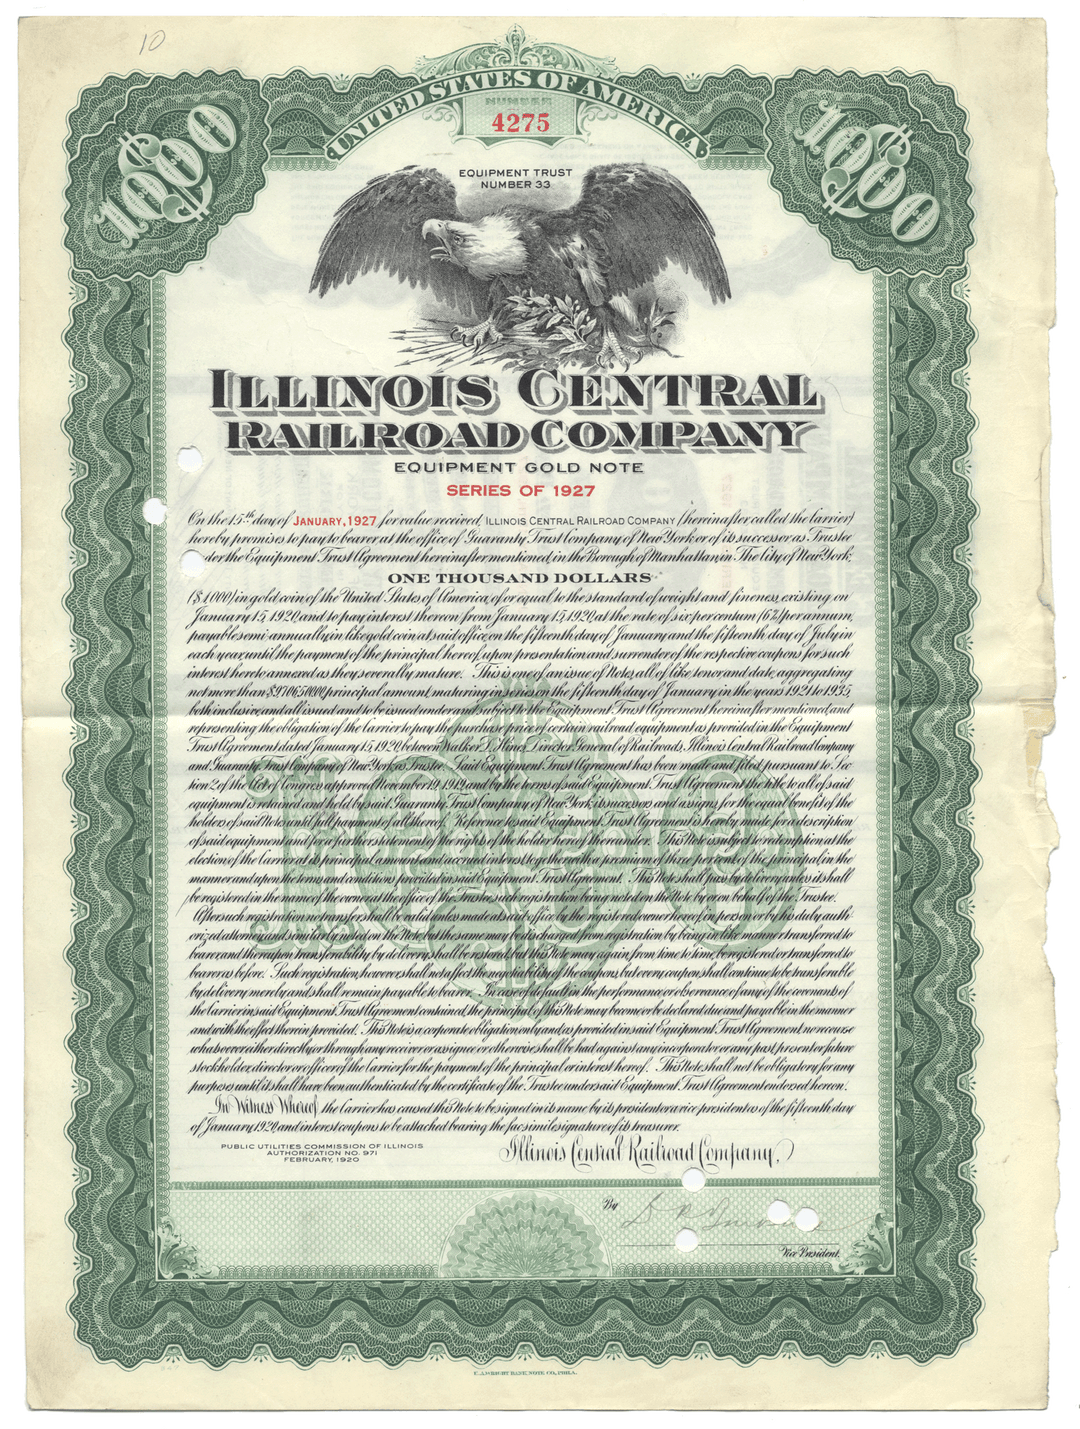 10
UNITED STATES OF AMERICA
NUMBER
4275
$1000
$1000
EQUIPMENT TRUST
NUMBER 33
ILLINOIS CENTRAL
RAILROAD COMPANY
EQUIPMENT GOLD NOTE
SERIES OF 1927
On the 15th day of JANUARY, 1927 for value received, ILLINOIS CENTRAL RAILROAD COMPANY (hereinafter called the Carrier)
hereby promises to pay to bearer at the office of Guaranty Trust Company of New York or of its successor as Trustee
der the Equipment Trust Agreement hereinafter mentioned, in the Borough of Manhattan, in The City of New York,
ONE THOUSAND DOLLARS
($1000) in gold coin of the United States of America, of or equal to the standard of weight and fineness existing on
January 15, 1920, and to pay interest thereon from January 15, 1920, at the rate of six per centum (6%) per annum,
payable semi-annually in like gold coin at said office, on the fifteenth day of January and the fifteenth day of July in
each year, until the payment of the principal hereof, upon presentation and surrender of the respective coupons for such
interest hereto annexed as they severally mature. This is one of an issue of Notes, all of like tenor and date, aggregating
not more than $9706500.00 principal amount, maturing in series on the fifteenth day of January in the years 1921 to 1935,
both inclusive, and all issued and to be issued under and subject to the Equipment Trust Agreement hereinafter mentioned, and
representing the obligation of the Carrier to pay the purchase price of certain railroad equipment as provided in the Equipment
Trust Agreement dated January 15, 1920, between Walker D. Hines, Director General of Railroads, Illinois Central Railroad Company
and Guaranty Trust Company of New York as Trustee. Said Equipment Trust Agreement has been made and filed pursuant to Sec-
tion 2 of the Act of Congress approved November 19, 1919, and by the terms of said Equipment Trust Agreement the title to all of said
equipment is retained and held by said Guaranty Trust Company of New York, its successors and assigns for the equal benefit of the
holders of said Notes until full payment of all thereof. Reference to said Equipment Trust Agreement is hereby made for a description
of said equipment and for a further statement of the rights of the holder hereof thereunder. This Note is subject to redemption at the
election of the Carrier at its principal amount and accrued interest, together with a premium of three per cent. of the principal, in the
manner and upon the terms and conditions provided in said Equipment Trust Agreement. This Note shall pass by delivery unless it shall
be registered in the name of the owner at the office of the Trustee, such registration being noted on the Note by or on behalf of the Trustee.
After such registration no transfer shall be valid unless made at said office by the registered owner hereof, in person or by his duly auth-
orized attorney, and similarly noted on the Note, but the same may be discharged from registration by being in like manner transferred to
bearer, and thereupon transferability by delivery shall be restored, but this Note may again, from time to time, be registered or transferred to
bearer as before. Such registration, however, shall not affect the negotiability of the coupons, but every coupon shall continue to be transferable
by delivery merely, and shall remain payable to bearer. In case of default in the performance or observance of any of the covenants of
the Carrier in said Equipment Trust Agreement contained, the principal of this Note may become or be declared due and payable in the manner
and with the effect therein provided. This Note is a corporate obligation only and, as provided in said Equipment Trust Agreement, no recourse
whatsoever either directly or through any receiver or assignee, or otherwise shall be had against any incorporator or any past, present or future
stockholder, director or officer of the Carrier for the payment of the principal or interest hereof. This Note shall not be obligatory for any
purpose until it shall have been authenticated by the certificate of the Trustee under said Equipment Trust Agreement endorsed hereon.
In Witness Whereof, the Carrier has caused this Note to be signed in its name by its president or a vice president as of the fifteenth day
of January, 1920, and interest coupons to be attached bearing the facsimile signature of its treasurer.
PUBLIC UTILITIES COMMISSION OF ILLINOIS
AUTHORIZATION NO. 971
FEBRUARY, 1920
Illinois Central Railroad Company,
By
Vice President.
E.A. WRIGHT BANK NOTE CO., PHILA.